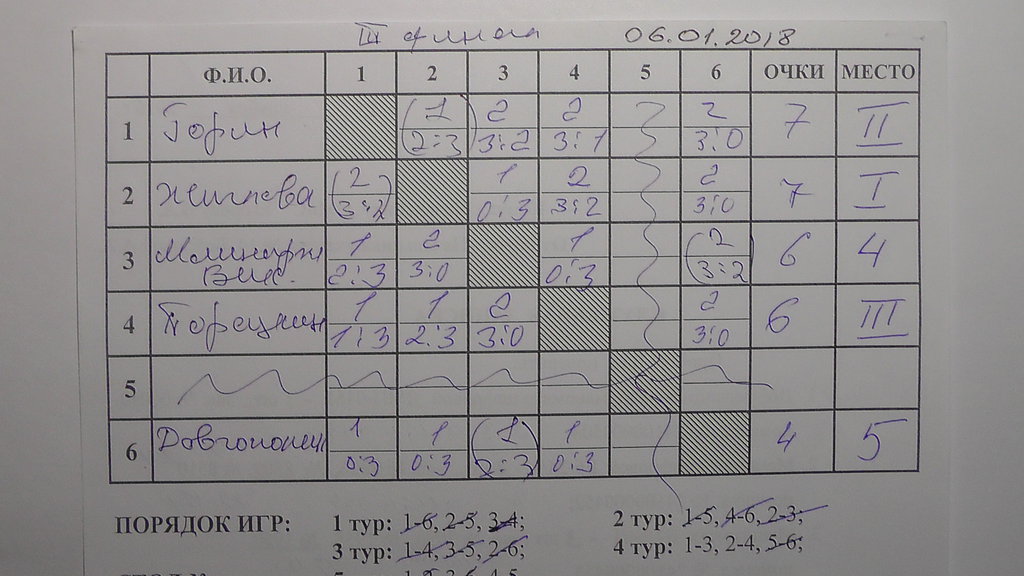 III финал 06.01.2018
Ф.И.О. 1 2 3 4 5 6 ОЧКИ МЕСТО
1 Горин (1 2 2 2 7 II
2:3) 3:2 3:1 3:0
2 (2 1 2 2 7 I
3:2) 0:3 3:2 3:0
3 1 2 1 (2 6 4
Вик. 2:3 3:0 0:3 3:2)
4 1 1 2 2 6 III
1:3 2:3 3:0 3:0
5
6 1 1 (1 1 4 5
0:3 0:3 2:3) 0:3
ПОРЯДОК ИГР: 1 тур: 1-6, 2-5, 3-4; 2 тур: 1-5, 4-6, 2-3;
3 тур: 1-4, 3-5, 2-6; 4 тур: 1-3, 2-4, 5-6;